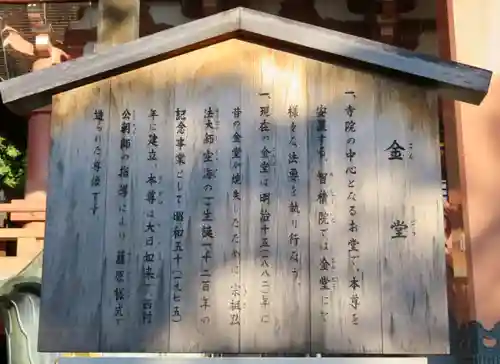 金堂
一、寺院の中心となるお堂で、本尊を
安置する。智積院では金堂にて
様々な法要を執り行なう。
一、現在の金堂は明治十五(一八八二)年に
昔の金堂が焼失したために宗祖弘
法大師空海の ご生誕一千二百年の
記念事業として昭和五十(一九七五)
年に建立、本尊は大日如来で、西村
公朝師の指導により
造られた尊像です。